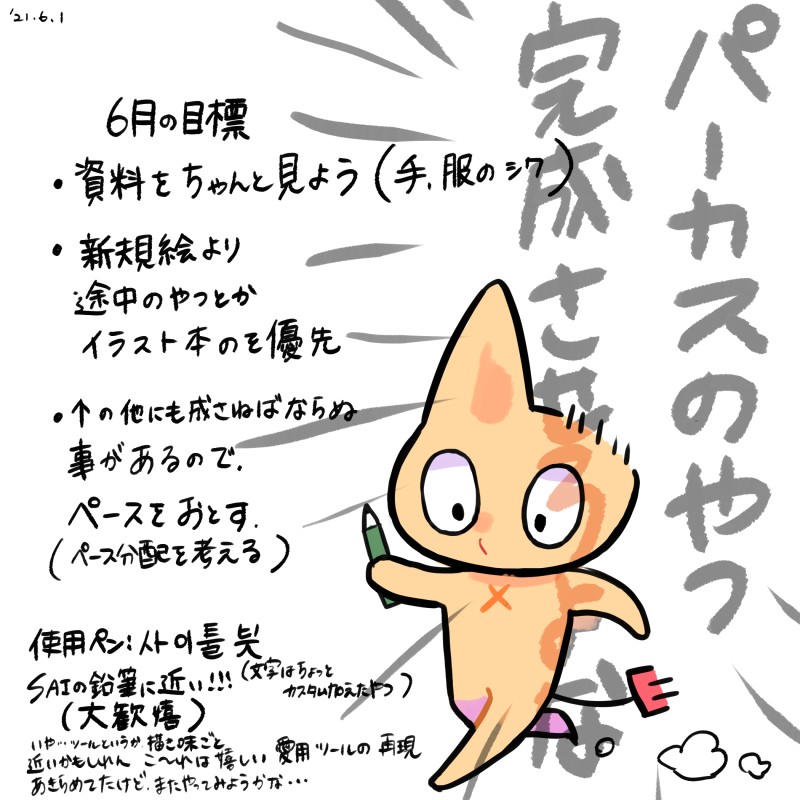 '21.6.1
パーカスのやつ
完成させ
6月の目標
・資料をちゃんと見よう(手、服のシワ)
・新規絵より
途中のやつとか
イラスト本のを優先
・↑の他にも成さねばならぬ
事があるので、
ペースをおとす.
(ペース分配を考える)
使用ペン:사이툴 붓
SAIの鉛筆に近い!!!
(文字はちょっと
カスタム加えたやつ)
(大歓嬉)
いや…ツールというか、描き味ごと
近いかもしれん こ〜れは嬉しい 愛用ツールの再現
あきらめてたけど、またやってみようかな…